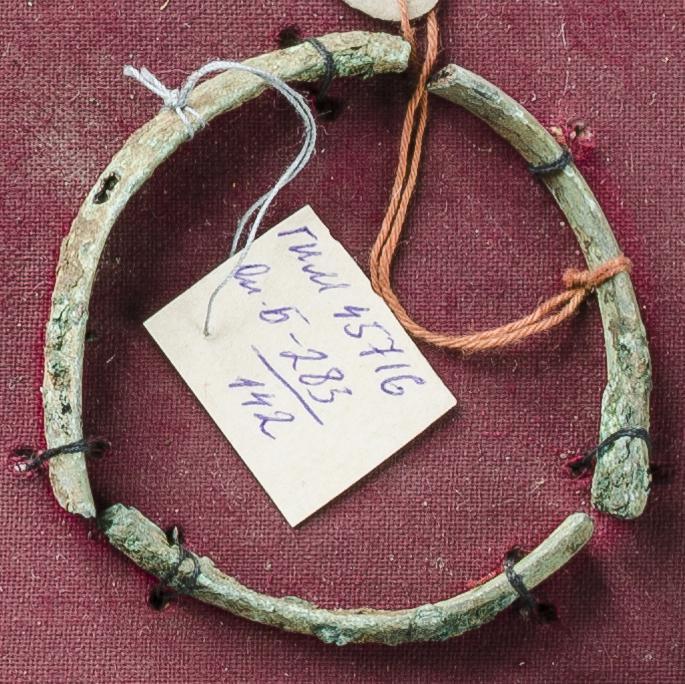 ГИМ 45716
оп. Б-283
142